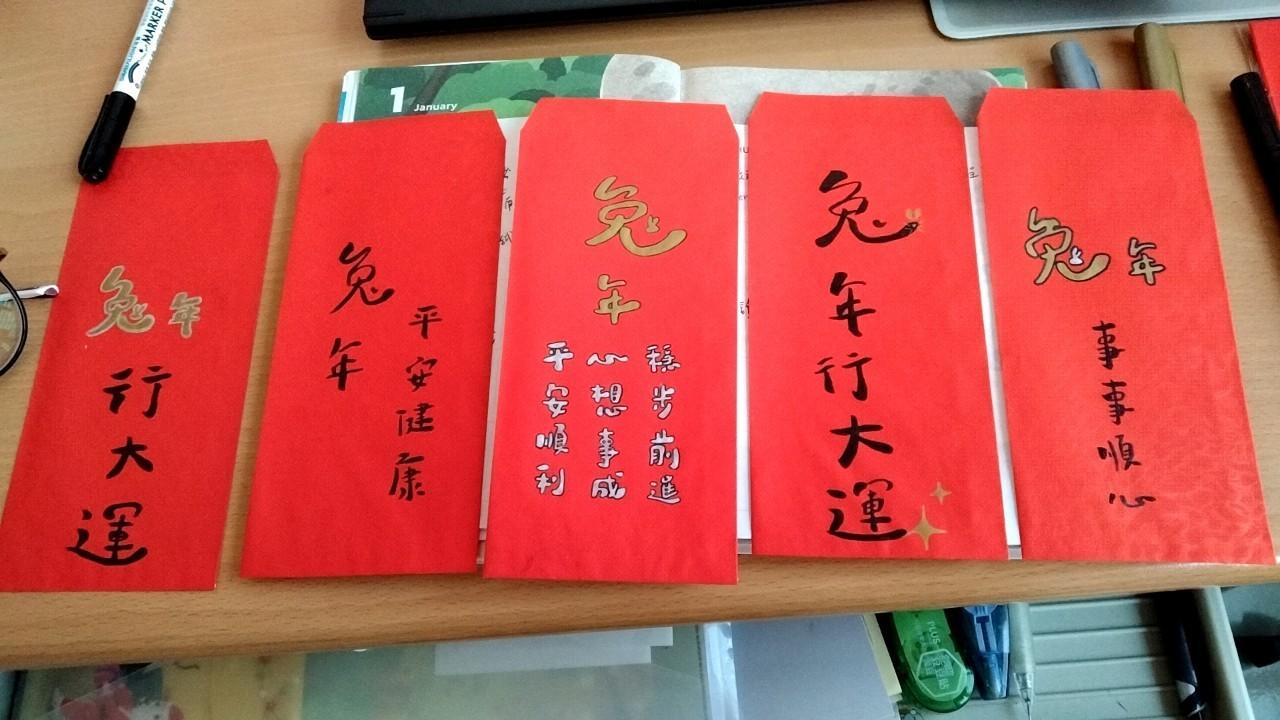 MARKER
1 January
兔年
行大運
兔年
平安健康
兔年
穩步前進
心想事成
平安順利
兔年行大運
兔年
事事順心
PLUS